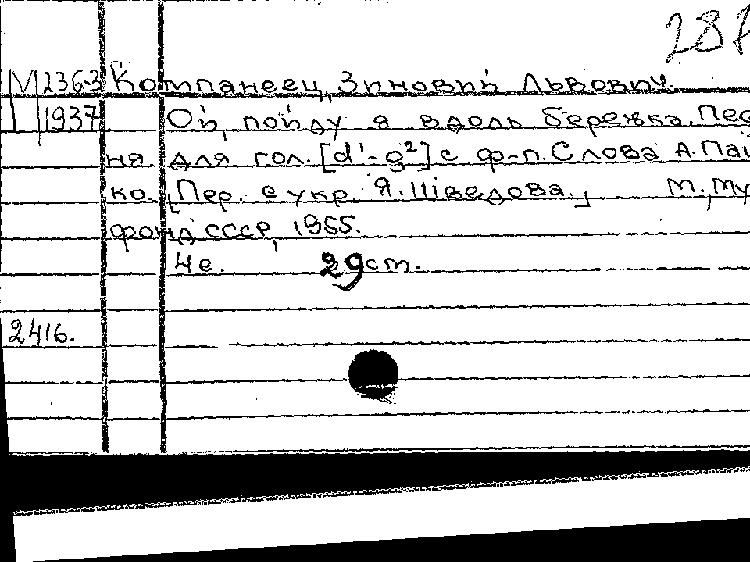 287
М 2363 Компанеец, Зиновий Львович.
1937 Ой, пойду я вдоль бережка. Пес
ня для гол. [d¹-g²] с ф-п. Слова А. Пай
ко. [Пер. с укр. Я. Шведова.] М., Му
фонд СССР, 1965.
4 с. 29 ст.
2416.